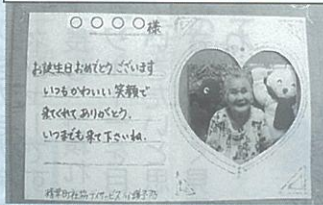 ○○○○様
お誕生日おめでとうございます
いつもかわいい笑顔で
来てくれてありがとう。
いつまでも来て下さいね。
デイサービス